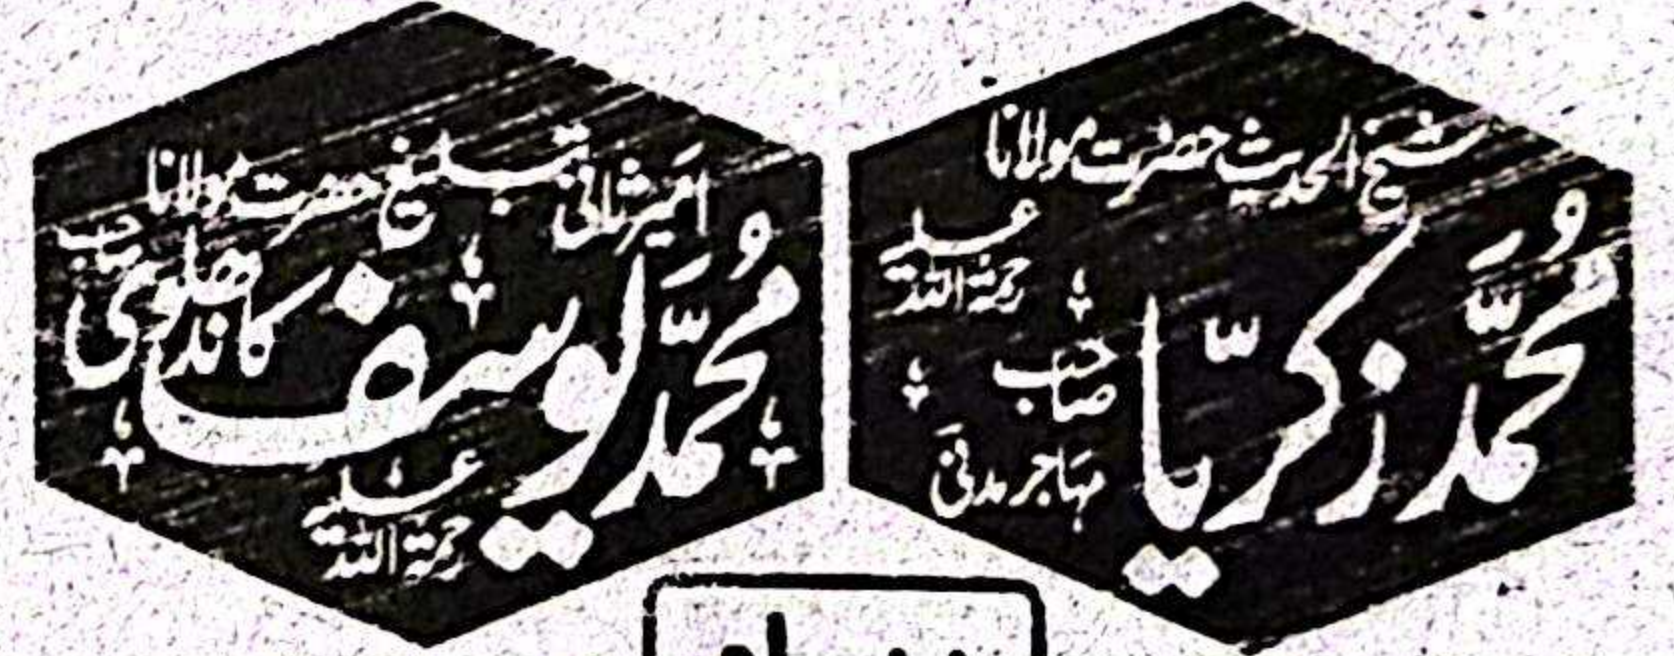 شیخ الحدیث حضرت مولانا
مُحَمَّد زکریّا
صاحب
مہاجر مدنی
رحمۃ اللہ علیہ
امیر ثانی تبلیغ حضرت مولانا
مُحَمَّد یوسف کاندھلوی صاحب
رحمۃ اللہ علیہ